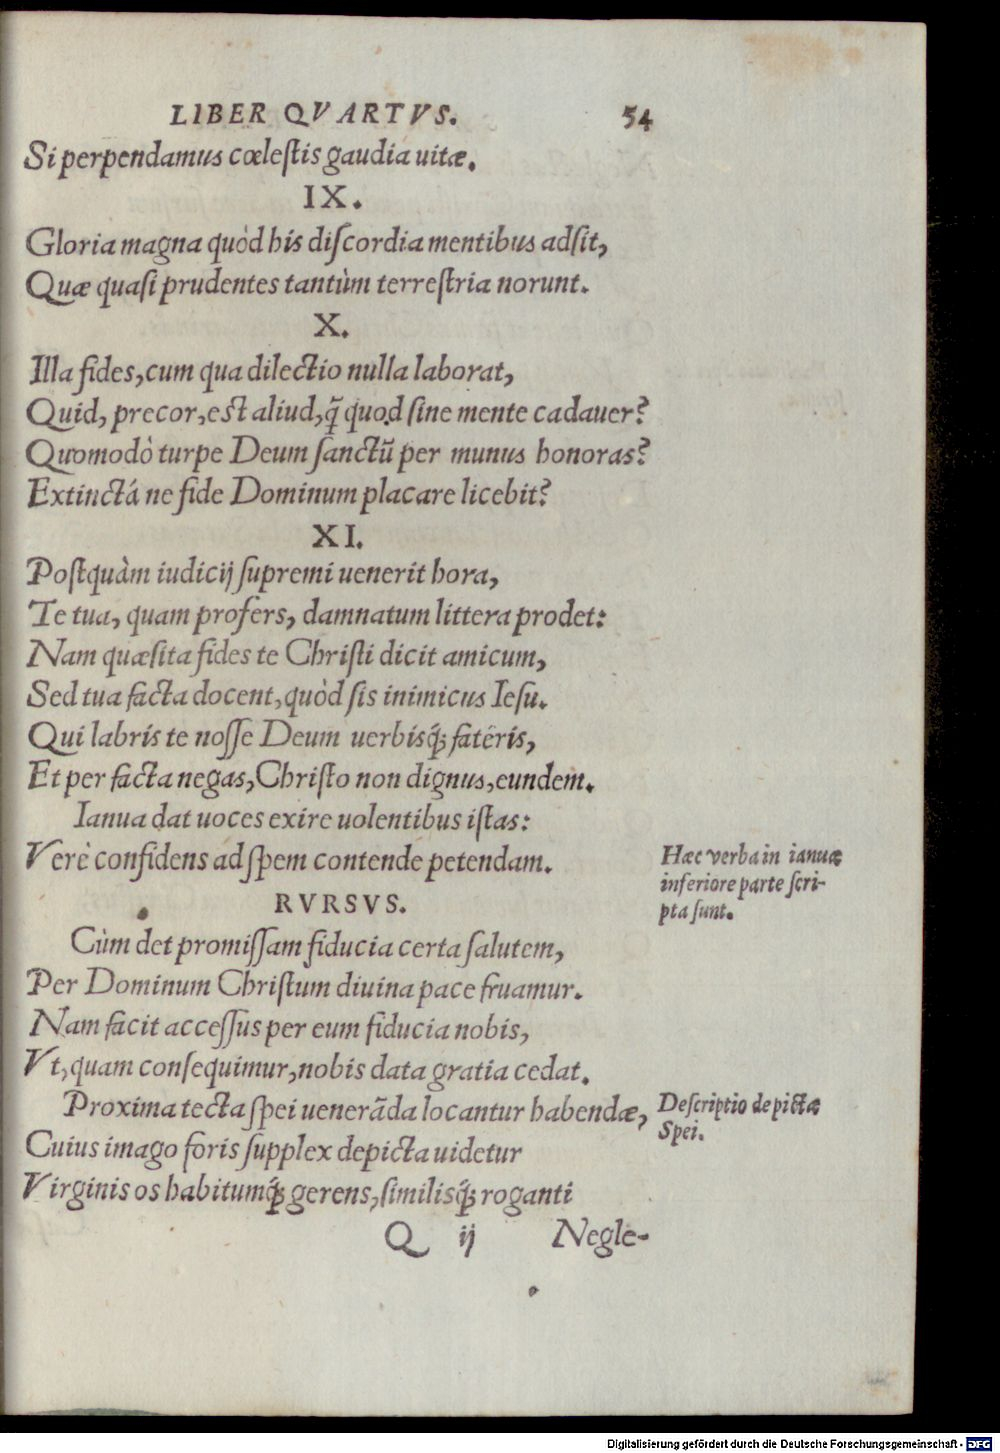 LIBER QVARTVS. 54
Si perpendamus cœlestis gaudia uitæ.
IX.
Gloria magna quòd his discordia mentibus adsit,
Quæ quasi prudentes tantùm terrestria norunt.
X.
Illa fides, cum qua dilectio nulla laborat,
Quid, precor, est aliud, q̃ quod sine mente cadauer?
Quomodò turpe Deum sanctũ per munus honoras?
Extinctá ne fide Dominum placare licebit?
XI.
Postquàm iudicij supremi uenerit hora,
Te tua, quam profers, damnatum littera prodet:
Nam quæsita fides te Christi dicit amicum,
Sed tua facta docent, quòd sis inimicus Iesu.
Qui labris te nosse Deum uerbisq́; fatêris,
Et per facta negas, Christo non dignus, eundem.
Ianua dat uoces exire uolentibus istas:
Verè confidens ad spem contende petendam.
Hæc verba in ianuæ
inferiore parte scri-
pta sunt.
RVRSVS.
Cùm det promissam fiducia certa salutem,
Per Dominum Christum diuina pace fruamur.
Nam facit accessus per eum fiducia nobis,
Vt, quam consequimur, nobis data gratia cedat.
Proxima tecta spei uenerãda locantur habendæ,
Descriptio depictæ
Spei.
Cuius imago foris supplex depicta uidetur
Virginis os habitumq́; gerens, similisq́; roganti
Q ij Negle-
Digitalisierung gefördert durch die Deutsche Forschungsgemeinschaft - DFG